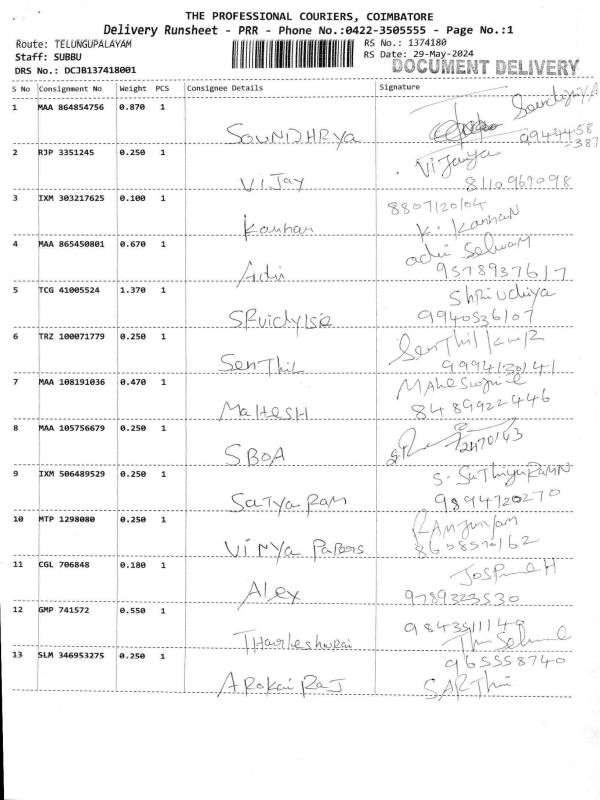 THE PROFESSIONAL COURIERS, COIMBATORE
Delivery Runsheet - PRR - Phone No.:0422-3505555 - Page No.:1
Route: TELUNGUPALAYAM
RS No.: 1374180
Staff: SUBBU
RS Date: 29-May-2024
DRS No.: DCJB137418001
DOCUMENT DELIVERY
S No Consignment No Weight PCS Consignee Details Signature
1 MAA 864854756 0.870 1
SOUNDHRYa
2 RJP 3351245 0.250 1
ViJay
Vijaya
8110969098
3 IXM 303217625 0.100 1
Kannan
8807120104
K. Kannan
4 MAA 865450801 0.670 1
Adhi
9578937617
5 TCG 41005524 1.370 1
9940536107
6 TRZ 100071779 0.250 1
SenThiL
9994130141
7 MAA 108191036 0.470 1
MaHESH
8489922446
8 MAA 105756679 0.250 1
SBOA
9 IXM 506489529 0.250 1
SaTyaRam
9894720270
10 MTP 1298080 0.250 1
11 CGL 706848 0.180 1
Alex
9789323530
12 GMP 741572 0.550 1
13 SLM 346953275 0.250 1
ARokai RaJ
965558740
SARThi